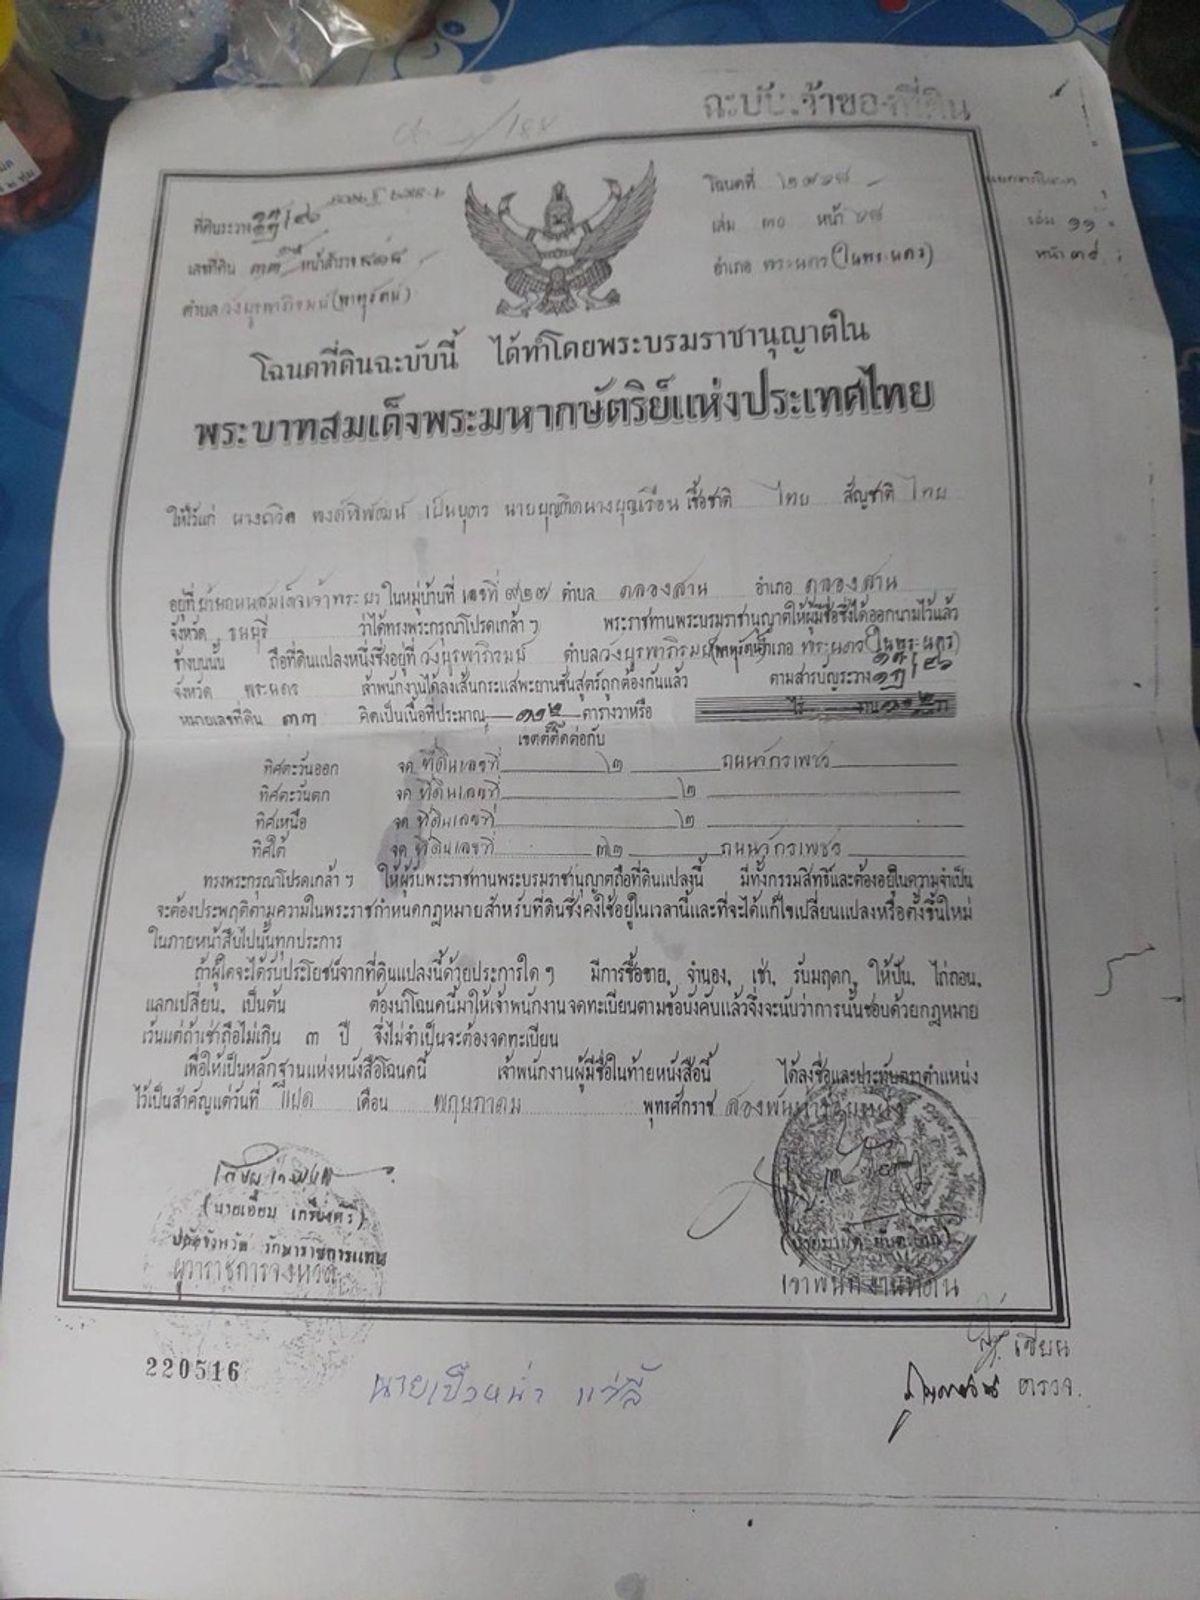 ฉะบับเจ้าของที่ดิน
โฉนดที่
ที่ดินระวาง
เล่ม ๓๐ หน้า
เลขที่ดิน ๓๓ หน้าสำรวจ
อำเภอ พระนคร(ในพระนคร)
ตำบล วังบูรพาภิรมย์(พาหุรัตน์)
เล่ม ๑๑
หน้า
โฉนดที่ดินฉะบับนี้ ได้ทำโดยพระบรมราชานุญาตใน
พระบาทสมเด็จพระมหากษัตริย์แห่งประเทศไทย
ให้ไว้แก่ นางถวิล พงศ์พิพัฒน์ เป็นบุตร นายบุญติดนางบุญเรือน เชื้อชาติ ไทย สัญชาติ ไทย
อยู่ที่บ้านถนนสมเด็จเจ้าพระยา ในหมู่บ้านที่ เลขที่ ๙๒๗ ตำบล คลองสาน อำเภอ คลองสาน
จังหวัด ธนบุรี ว่าได้ทรงพระกรุณโปรดเกล้า ฯ พระราชทานพระบรมราชานุญาตให้ผู้มีชื่อซึ่งได้ออกนามไว้แล้ว
ข้างบนนั้น ถือที่ดินแปลงหนึ่งซึ่งอยู่ที่ วังบูรพาภิรมย์ ตำบลวังบูรพาภิรมย์(พาหุรัตน์)อำเภอ พระนคร(ในพระนคร)
จังหวัด พระนคร ล้าพนักงานได้ลงเส้นกระแสพะยานชันสูตร์ถูกต้องกันแล้ว ตามสารบัญระวาง
หมายเลขที่ดิน ๓๓ คิดเป็นเนื้อที่ประมาณ ๑๑๒ ตารางวาหรือ ไร่ งาน วา
เขตต์ติดต่อกับ
ทิศตะวันออก จด ที่ดินเลขที่ ๒ ถนนจักรเพชร
ทิศตะวันตก จด ที่ดินเลขที่ ๒
ทิศเหนือ จด ที่ดินเลขที่ ๒
ทิศใต้ จด ที่ดินเลขที่ ๓๒ ถนนจักรเพชร
ทรงพระกรุณโปรดเกล้า ฯ ให้ผู้รับพระราชทานพระบรมราชานุญาตถือที่ดินแปลงนี้ มีทั้งกรรมสิทธิ์และต้องอยู่ในความจำเป็น
จะต้องประพฤติตามความในพระราชกำหนดกฎหมายสำหรับที่ดินซึ่งคงใช้อยู่ในเวลานี้และที่จะได้แก้ไขเปลี่ยนแปลงหรือตั้งขึ้นใหม่
ในภายหน้าสืบไปนั้นทุกประการ
ถ้าผู้ใดจะได้รับประโยชน์จากที่ดินแปลงนี้ด้วยประการใด ๆ มีการซื้อขาย, จำนอง, เช่า, รับมฤดก, ให้ปัน, ไถ่ถอน,
แลกเปลี่ยน, เป็นต้น ต้องนำโฉนดนี้มาให้เจ้าพนักงานจดทะเบียนตามข้อบังคับแล้วจึ่งจะนับว่าการนั้นชอบด้วยกฎหมาย
เว้นแต่ถ้าเช่าถือไม่เกิน ๓ ปี จึ่งไม่จำเป็นจะต้องจดทะเบียน
เพื่อให้เป็นหลักฐานแห่งหนังสือโฉนดนี้ เจ้าพนักงานผู้มีชื่อในท้ายหนังสือนี้ ได้ลงชื่อและประทับตราตำแหน่ง
ไว้เป็นสำคัญแต่วันที่ แปด เดือน พฤษภาคม พุทธศักราช
ปลัดจังหวัด รักษาราชการแทน
ผู้ว่าราชการจังหวัด
เจ้าพนักงานที่ดิน
220516
เขียน
ตรวจ.